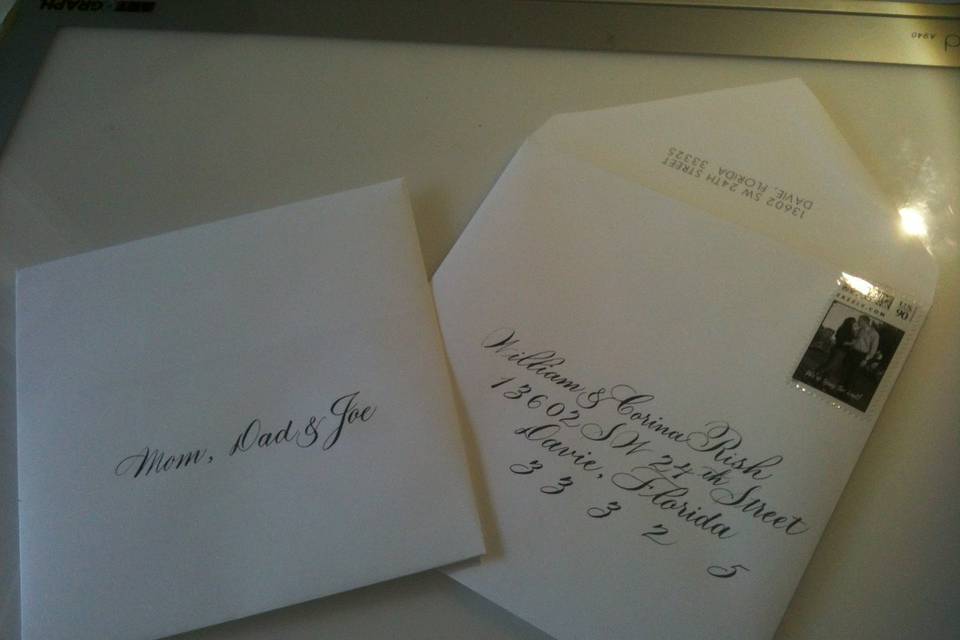 Mom, Dad & Joe
William & Corina Rish
13602 SW 24th Street
Davie, Florida
3 3 3 2 5
13602 SW 24TH STREET
DAVIE, FLORIDA 33325
A940